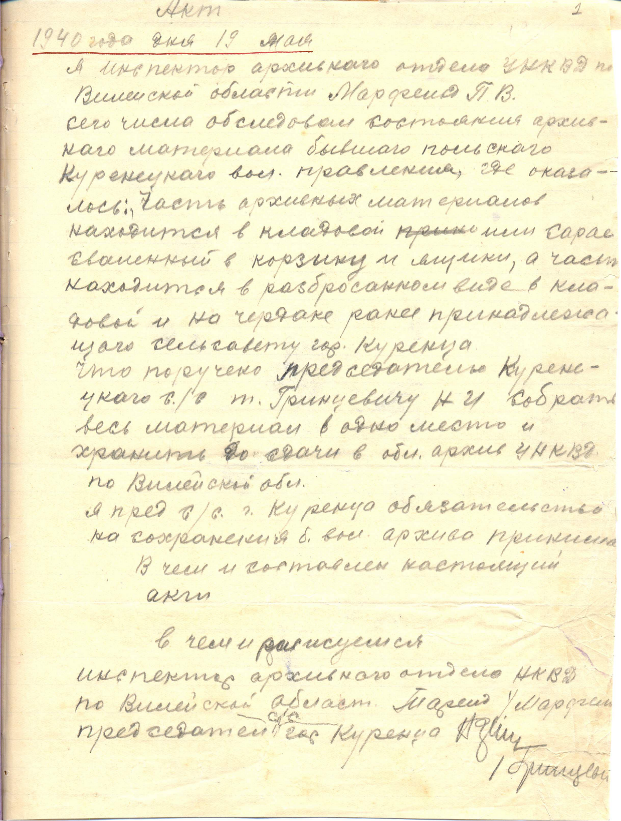 Акт
1
1940 года дня 19 мая
Я инспектор архивнаго отдела УНКВД по
Вилейской области Марфеид П.В.
сего числа обследовал состояния архив-
наго материала бывшаго польскаго
Куренецкаго вол. правления, где оказа-
лось:, Часть архивных материалов
находится в кладовой или сарае
сваленный в корзину и ящики, а часть
находится в разбросанном виде в кла-
довой и на чердаке ранее принадлежа-
щого сельсавету гор. Куренца
Что поручено председателю Курене-
цкаго с/с т. Гринцевичу Н И собрать
весь материал в одно место и
хранить до сдачи в обл. архив УНКВД
по Вилейской обл.
Я пред с/с. г. Куренца обязательство
на сохранения б. вол. архива принима
В чем и составлен настоящий
акт
в чем и расписуемся
инспектор архивнаго отдела НКВД
по Вилейской област.
с/с
председател гор Куренца